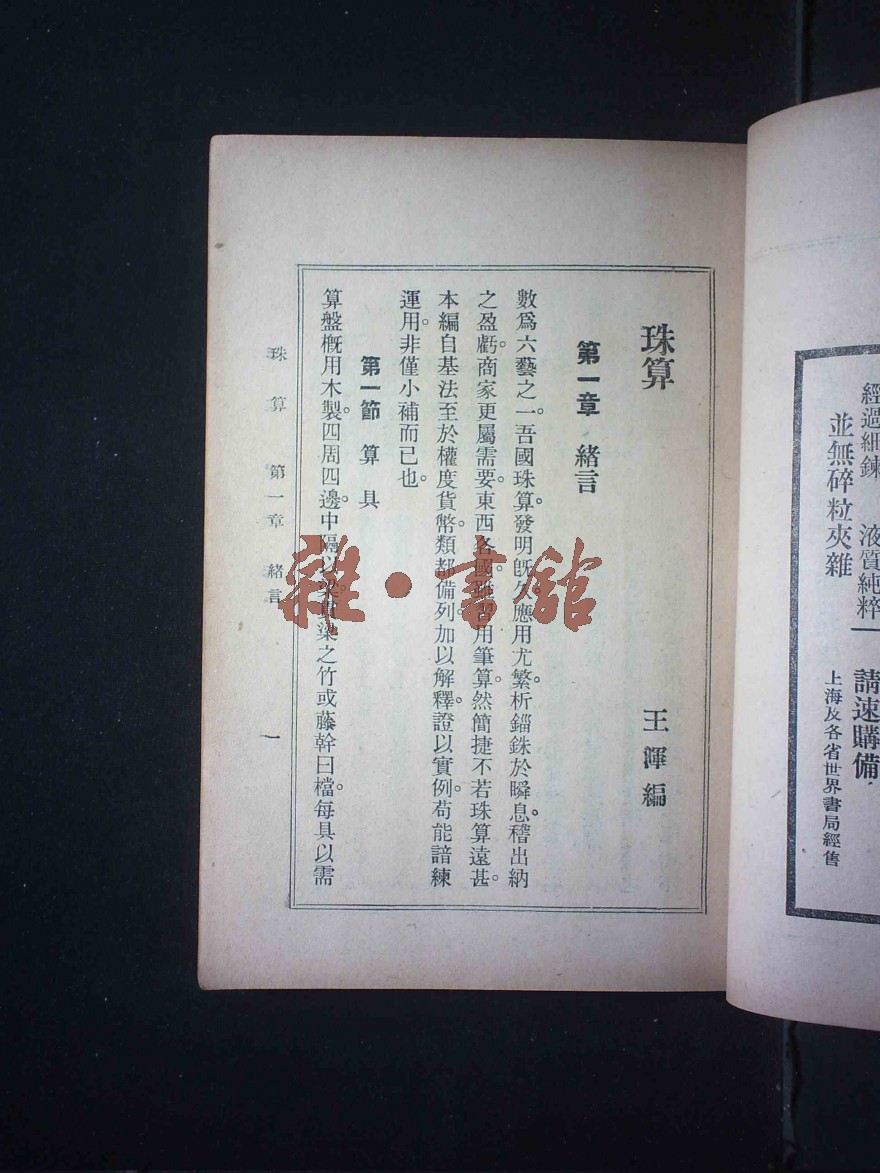 珠算
王渾編
第一章 緒言
數爲六藝之一。吾國珠算。發明旣久。應用尤繁。析錙銖於瞬息。稽出納
之盈虧。商家更屬需要。東西各國。雖習用筆算。然簡捷不若珠算遠甚。
本編自基法至於權度貨幣。類都備列。加以解釋。證以實例。苟能諳練
運用。非僅小補而已也。
第一節 算具
算盤概用木製。四周四邊。中隔以梁。貫梁之竹或藤幹曰檔。每具以需
珠算 第一章 緒言 一
雜·書館
經過細鍊 液質純粹
並無碎粒夾雜
請速購備
上海及各省世界書局經售